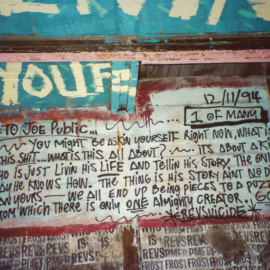 YOUF
12/11/94
TO JOE PUBLIC...
1 OF MANY
YOU MIGHT BE ASKIN YOURSELF RIGHT NOW, WHAT I
THIS SHIT... WHAT IS THIS ALL ABOUT? IT'S ABOUT A
O IS JUST LIVIN HIS LIFE AND TELLIN HIS STORY. THE ON
AY HE KNOWS HOW. THE THING IS HIS STORY AINT NO D
AN YOURS — WE ALL END UP BEING PIECES TO A PUZZ
OM WHICH THERE IS ONLY ONE ALMIGHTY CREATOR.
*REVSUICIDE*
FROST FROST FROST
REVS REVS